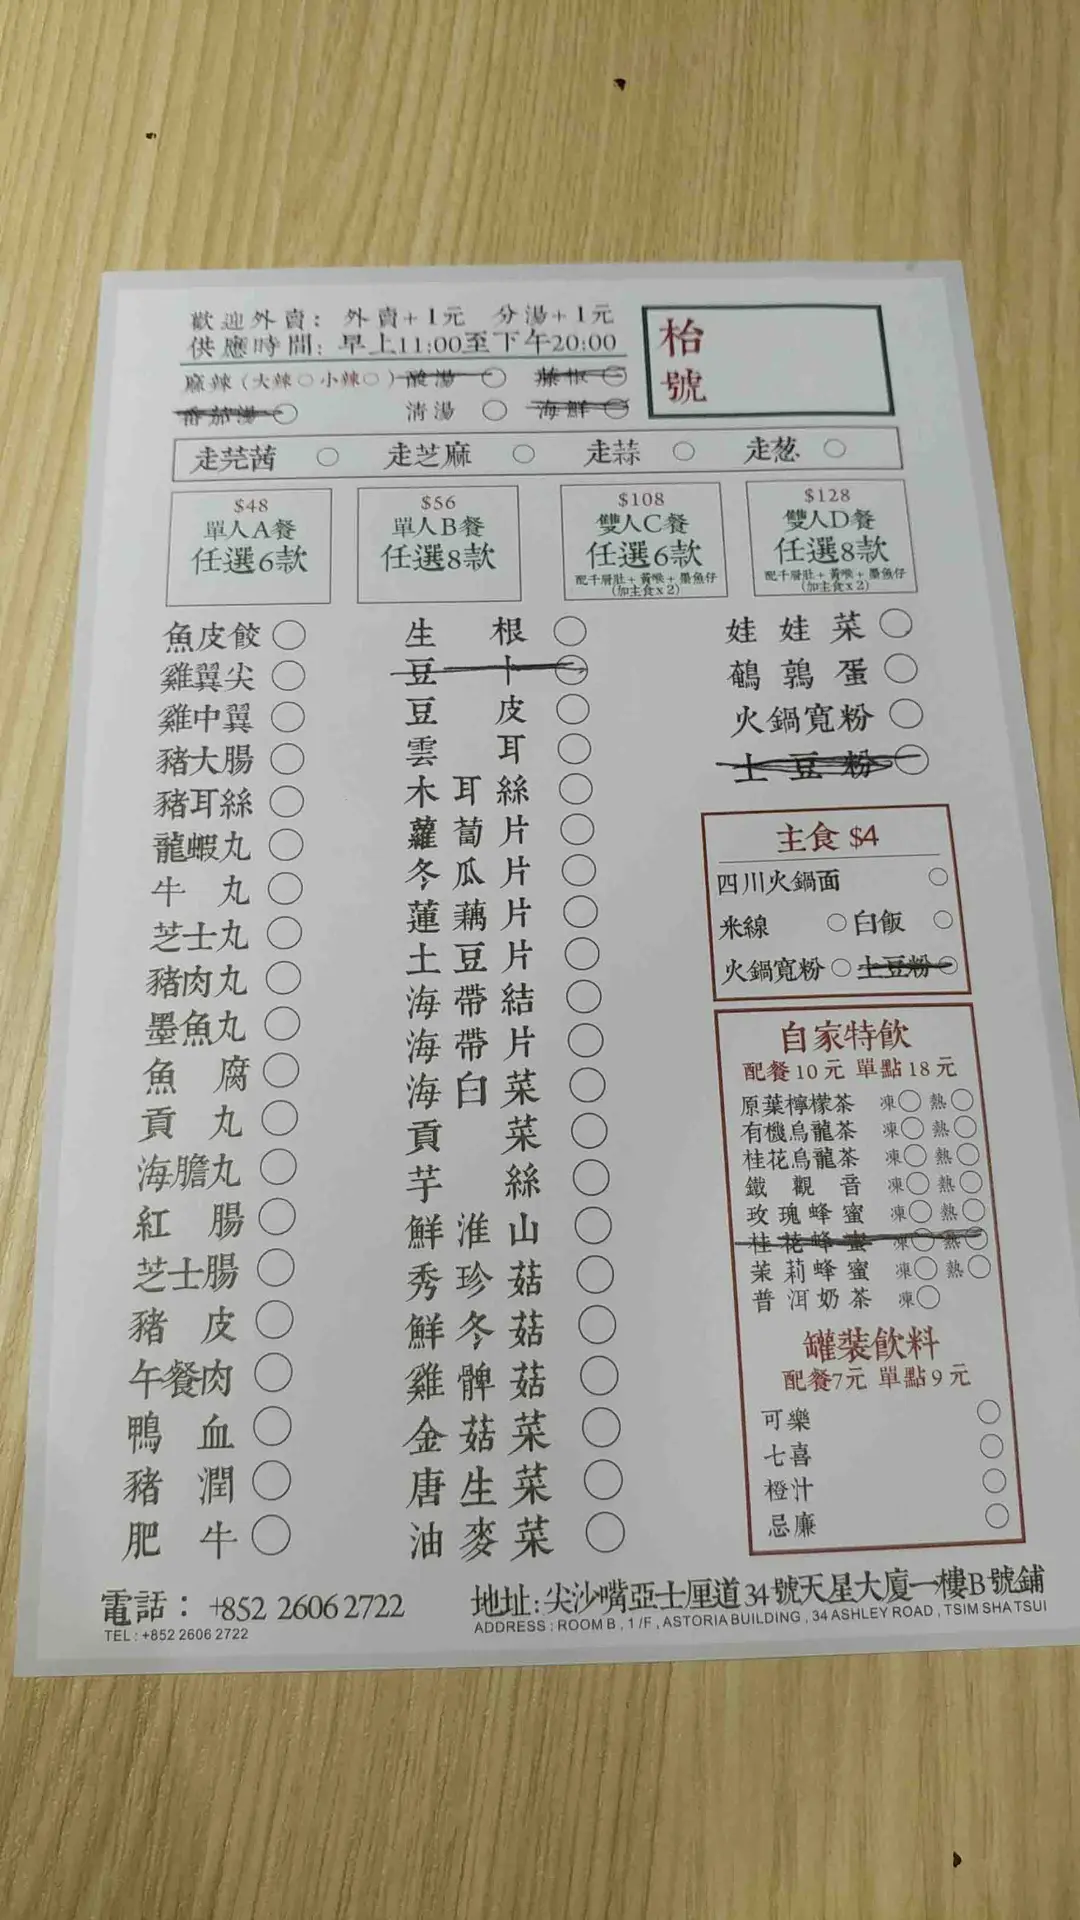 歡迎外賣：外賣+1元 分湯+1元
供應時間：早上11:00至下午20:00
麻辣（大辣○小辣○）酸湯○ 藤椒○
番茄湯○ 清湯○ 海鮮○
枱號
走芫茜○ 走芝麻○ 走蒜○ 走葱○
$48
單人A餐
任選6款
$56
單人B餐
任選8款
$108
雙人C餐
任選6款
配千層肚+黃喉+墨魚仔
(加主食x2)
$128
雙人D餐
任選8款
配千層肚+黃喉+墨魚仔
(加主食x2)
魚皮餃○
雞翼尖○
雞中翼○
豬大腸○
豬耳絲○
龍蝦丸○
牛丸○
芝士丸○
豬肉丸○
墨魚丸○
魚腐○
貢丸○
海膽丸○
紅腸○
芝士腸○
豬皮○
午餐肉○
鴨血○
豬潤○
肥牛○
生根○
豆卜○
豆皮○
雲耳○
木耳絲○
蘿蔔片○
冬瓜片○
蓮藕片○
土豆片○
海帶結○
海帶片○
海白菜○
貢菜○
芋絲○
鮮淮山○
秀珍菇○
鮮冬菇○
雞髀菇○
金菇菜○
唐生菜○
油麥菜○
娃娃菜○
鵪鶉蛋○
火鍋寬粉○
土豆粉○
主食 $4
四川火鍋面○
米線○白飯○
火鍋寬粉○土豆粉○
自家特飲
配餐10元 單點18元
原葉檸檬茶 凍○熱○
有機烏龍茶 凍○熱○
桂花烏龍茶 凍○熱○
鐵觀音 凍○熱○
玫瑰蜂蜜 凍○熱○
桂花蜂蜜 凍○熱○
茉莉蜂蜜 凍○熱○
普洱奶茶 凍○
罐裝飲料
配餐7元 單點9元
可樂○
七喜○
橙汁○
忌廉○
電話：+852 2606 2722
TEL: +852 2606 2722
地址:尖沙嘴亞士厘道34號天星大廈一樓B號鋪
ADDRESS : ROOM B , 1 /F , ASTORIA BUILDING , 34 ASHLEY ROAD , TSIM SHA TSUI